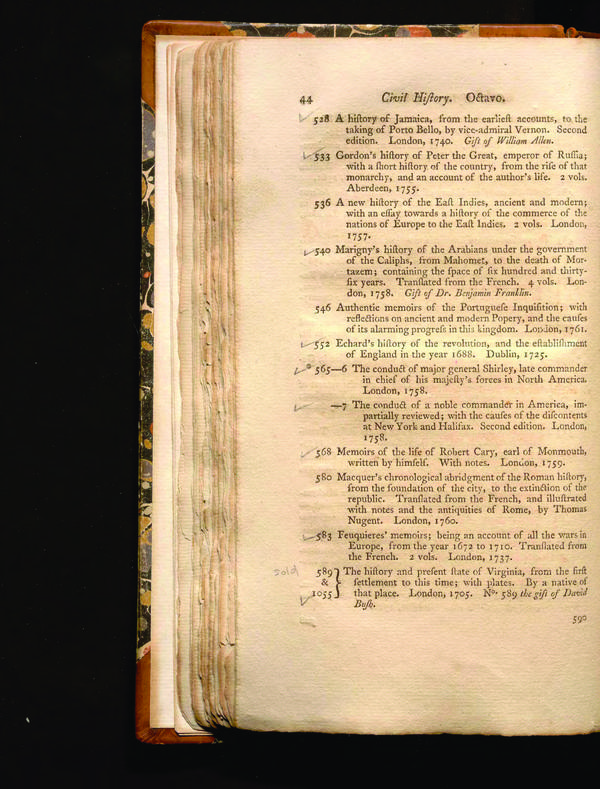 44 Civil Hiſtory. Octavo.
528 A hiſtory of Jamaica, from the earlieſt accounts, to the
taking of Porto Bello, by vice-admiral Vernon. Second
edition. London, 1740. Gift of William Allen.
533 Gordon's hiſtory of Peter the Great, emperor of Ruſſia;
with a ſhort hiſtory of the country, from the riſe of that
monarchy, and an account of the author's life. 2 vols.
Aberdeen, 1755.
536 A new hiſtory of the Eaſt Indies, ancient and modern;
with an eſſay towards a hiſtory of the commerce of the
nations of Europe to the Eaſt Indies. 2 vols. London,
1757.
540 Marigny's hiſtory of the Arabians under the government
of the Caliphs, from Mahomet, to the death of Mor-
tazem; containing the ſpace of ſix hundred and thirty-
ſix years. Tranſlated from the French. 4 vols. Lon-
don, 1758. Gift of Dr. Benjamin Franklin.
546 Authentic memoirs of the Portugueſe Inquiſition; with
reflections on ancient and modern Popery, and the cauſes
of its alarming progreſs in this kingdom. London, 1761.
552 Echard's hiſtory of the revolution, and the eſtabliſhment
of England in the year 1688. Dublin, 1725.
565—6 The conduct of major general Shirley, late commander
in chief of his majeſty's forces in North America.
London, 1758.
—7 The conduct of a noble commander in America, im-
partially reviewed; with the cauſes of the diſcontents
at New York and Halifax. Second edition. London,
1758.
568 Memoirs of the life of Robert Cary, earl of Monmouth,
written by himſelf. With notes. London, 1759.
580 Macquer's chronological abridgment of the Roman hiſtory,
from the foundation of the city, to the extinction of the
republic. Tranſlated from the French, and illuſtrated
with notes and the antiquities of Rome, by Thomas
Nugent. London, 1760.
583 Feuquieres' memoirs; being an account of all the wars in
Europe, from the year 1672 to 1710. Tranſlated from
the French. 2 vols. London, 1737.
sold 589 } The hiſtory and preſent ſtate of Virginia, from the firſt
& ſettlement to this time; with plates. By a native of
1055 that place. London, 1705. No. 589 the gift of David
Buſh.
590